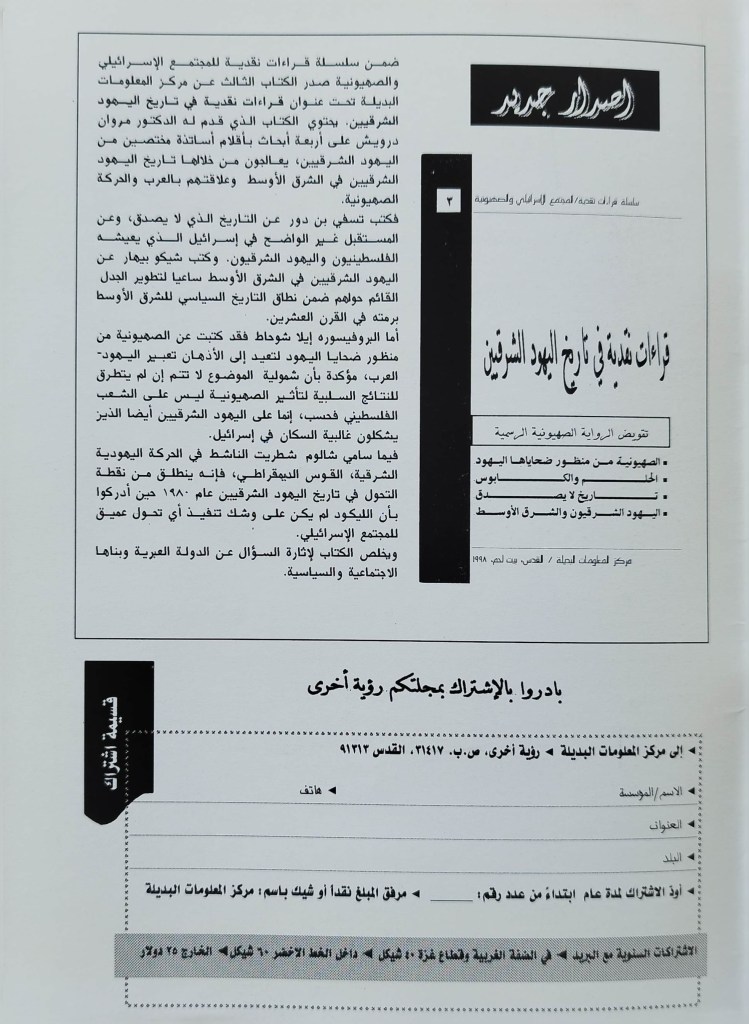 اصدار جديد
٣
سلسلة قراءات نقدية/المجتمع الإسرائيلي والصهيونية
قراءات نقدية في تاريخ اليهود الشرقيين
تقويض الرواية الصهيونية الرسمية
▪ الصهيونية من منظور ضحاياها اليهود
▪ الحلم والكابوس
▪ تاريخ لا يصدق
▪ اليهود الشرقيون والشرق الأوسط
مركز المعلومات البديلة / القدس، بيت لحم، ١٩٩٨
ضمن سلسلة قراءات نقدية للمجتمع الإسرائيلي
والصهيونية صدر الكتاب الثالث عن مركز المعلومات
البديلة تحت عنوان قراءات نقدية في تاريخ اليهود
الشرقيين. يحتوي الكتاب الذي قدم له الدكتور مروان
درويش على أربعة أبحاث بأقلام أساتذة مختصين من
اليهود الشرقيين، يعالجون من خلالها تاريخ اليهود
الشرقيين في الشرق الأوسط وعلاقتهم بالعرب والحركة
الصهيونية.
فكتب تسفي بن دور عن التاريخ الذي لا يصدق، وعن
المستقبل غير الواضح في إسرائيل الذي يعيشه
الفلسطينيون واليهود الشرقيون. وكتب شيكو بيهار عن
اليهود الشرقيين في الشرق الأوسط ساعيا لتطوير الجدل
القائم حولهم ضمن نطاق التاريخ السياسي للشرق الأوسط
برمته في القرن العشرين.
أما البروفيسوره إيلا شوحاط فقد كتبت عن الصهيونية من
منظور ضحايا اليهود لتعيد إلى الأذهان تعبير اليهود-
العرب، مؤكدة بأن شمولية الموضوع لا تتم إن لم يتطرق
للنتائج السلبية لتأثير الصهيونية ليس على الشعب
الفلسطيني فحسب، إنما على اليهود الشرقيين أيضا الذين
يشكلون غالبية السكان في إسرائيل.
فيما سامي شالوم شطريت الناشط في الحركة اليهودية
الشرقية، القوس الديمقراطي، فإنه ينطلق من نقطة
التحول في تاريخ اليهود الشرقيين عام ١٩٨٠ حين أدركوا
بأن الليكود لم يكن على وشك تنفيذ أي تحول عميق
للمجتمع الإسرائيلي.
ويخلص الكتاب لإثارة السؤال عن الدولة العبرية وبناها
الاجتماعية والسياسية.
بادروا بالإشتراك بمجلتكم رؤية أخرى
قسيمة اشتراك
◄ إلى مركز المعلومات البديلة ◄ رؤية أخرى، ص.ب. ٣١٤١٧، القدس ٩١٣١٣
◄ الاسم/المؤسسة ◄ هاتف
◄ العنوان
◄ البلد
◄ أودّ الاشتراك لمدة عام ابتداءً من عدد رقم: ______ ◄ مرفق المبلغ نقدأ أو شيك باسم: مركز المعلومات البديلة
الاشتراكات السنوية مع البريد ◄ في الضفة الغربية وقطاع غزة ٤٠ شيكل ◄ داخل الخط الاخضر ٦٠ شيكل ◄ الخارج ٢٥ دولار